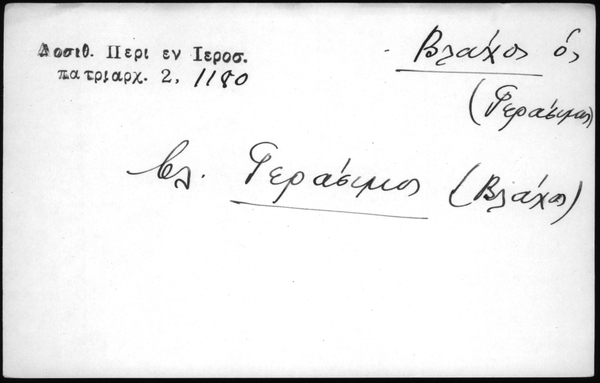 Δοσιθ. Περι εν Ιεροσ.
πατριαρχ. 2, 1180
Βλάχος ὁ,
(Γεράσιμος)
Βλ. Γεράσιμος (Βλάχος)